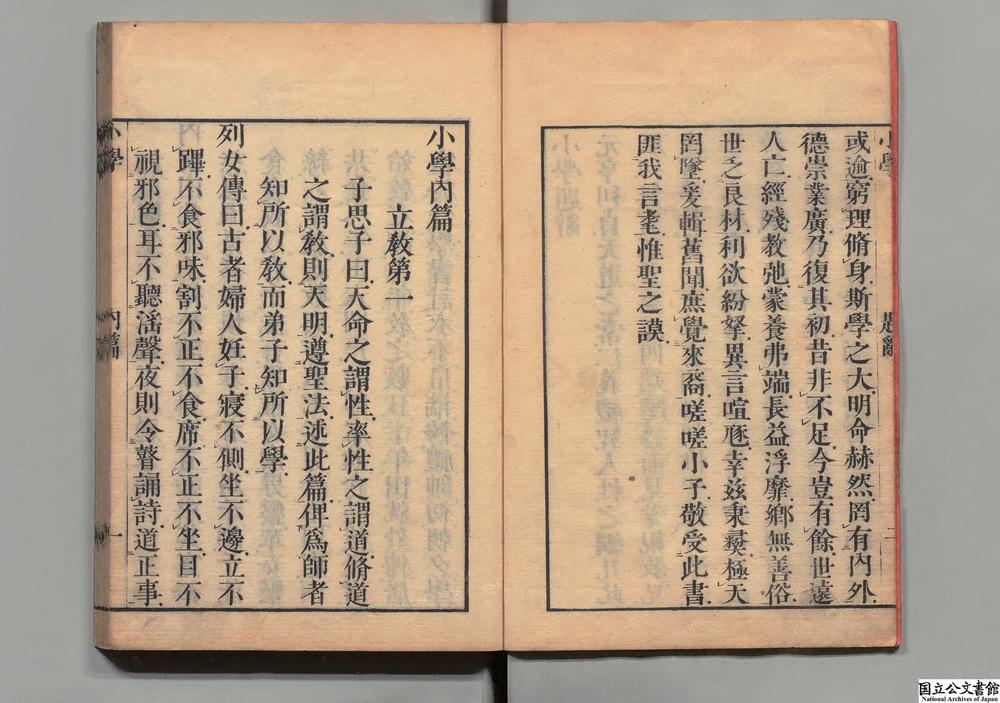 或逾窮理脩身斯學之大明命赫然罔有内外
德崇業廣乃復其初昔非不足今豈有餘世遠
人亡經殘教弛蒙養弗端長益浮靡鄉無善俗
世乏良材利欲紛拏異言喧豗幸兹秉彝極天
罔墜爰輯舊聞庶覺來裔嗟嗟小子敬受此書
匪我言耄惟聖之謨
小學内篇
立教第一
子思子曰天命之謂性率性之謂道脩道
之謂教則天明遵聖法述此篇俾爲師者
知所以教而弟子知所以學
列女傳曰古者婦人妊子寢不側坐不邊立不
蹕不食邪味割不正不食席不正不坐目不
視邪色耳不聽淫聲夜則令瞽誦詩道正事
小學 内篇 一
国立公文書館
National Archives of Japan